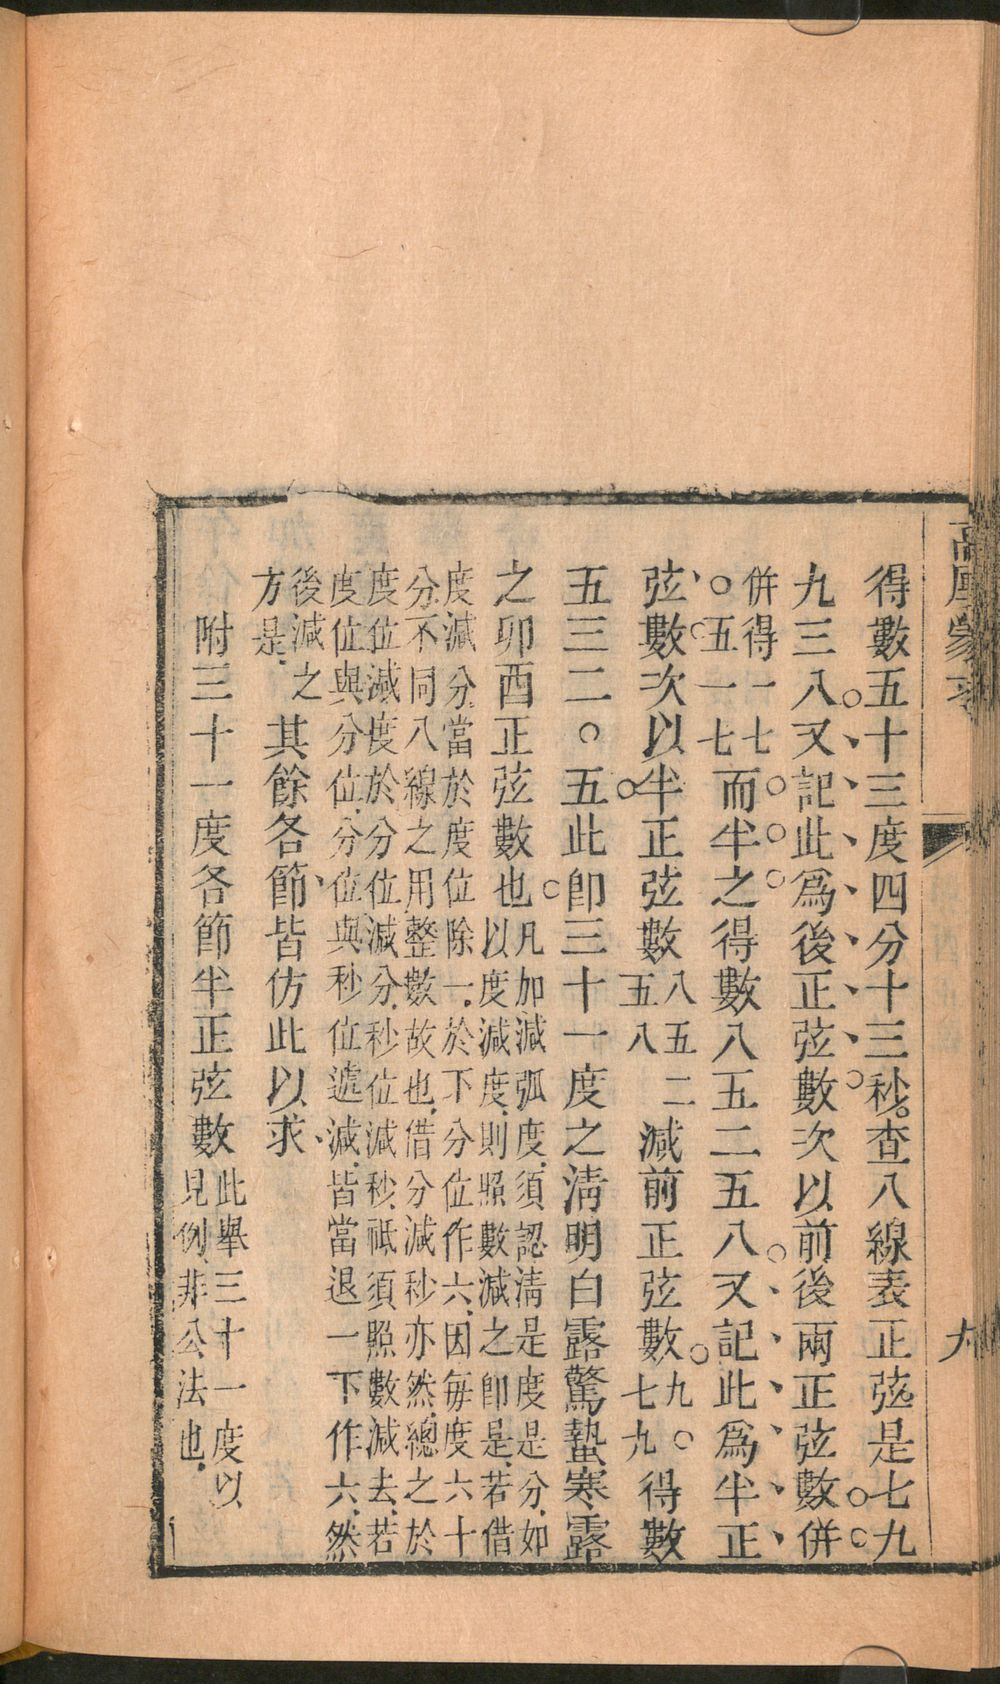 高厚蒙求　九
得數五十三度四分十三秒。查八線表正弦是七九
九三八又記此爲後正弦數次以前後兩正弦數併
併得一七
〇五一七
而半之得數八五二五八又記此爲半正
弦數次以半正弦數
八五二
五八
減前正弦數
九〇
七九
得數
五三二〇五此卽三十一度之淸明白露驚蟄寒露
之卯酉正弦數也
凡加減弧度須認淸是度是分如
以度減度則照數減之卽是若借
度減分當於度位除一於下分位作六因每度六十
分不同八線之用整數故也借分減秒亦然總之於
度位減度於分位減分秒位減秒祗須照數減去若
度位與分位分位與秒位遞減皆當退一下作六然
後減之
方是
其餘各節皆仿此以求
附三十一度各節半正弦數
此舉三十一度以
見例非公法也